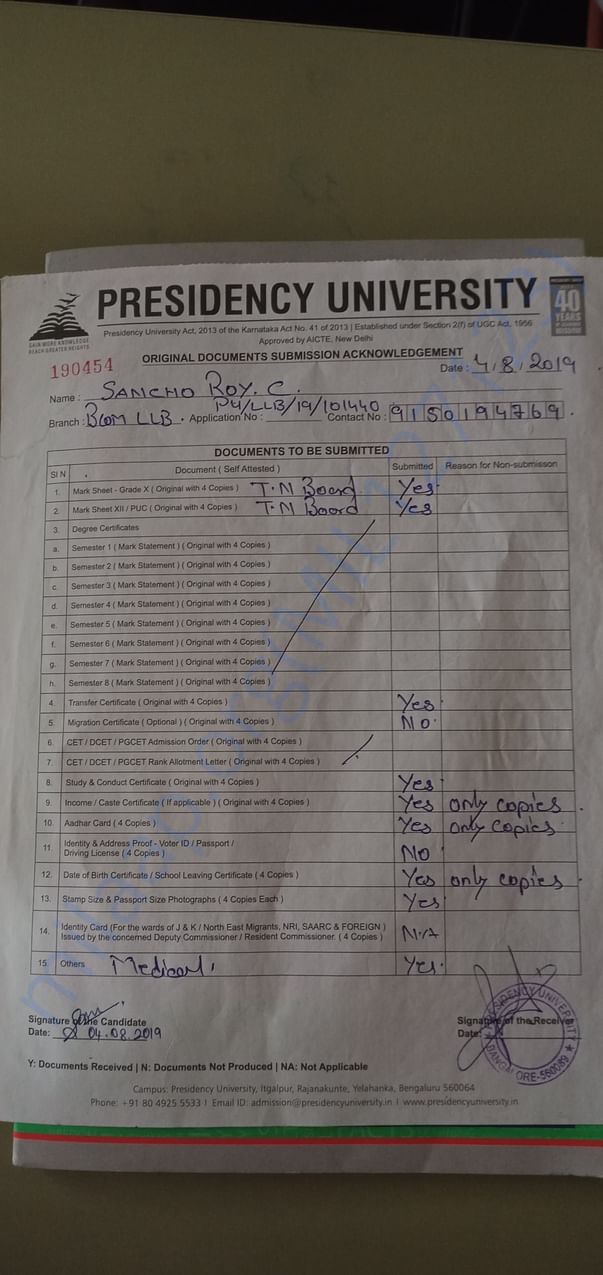 PRESIDENCY UNIVERSITY
GAIN MORE KNOWLEDGE
REACH GREATER HEIGHTS
40
YEARS
Presidency University Act, 2013 of the Karnataka Act No. 41 of 2013 | Established under Section 2(f) of UGC Act, 1956
Approved by AICTE, New Delhi
190454
ORIGINAL DOCUMENTS SUBMISSION ACKNOWLEDGEMENT
Date : 4/8/2019
Name : SANCHO ROY. C.
Branch : BCOM LLB . Application No : PU/LLB/19/101440 Contact No : 9150194769 .
DOCUMENTS TO BE SUBMITTED
Sl N Document ( Self Attested ) Submitted Reason for Non-submisson
1. Mark Sheet - Grade X ( Original with 4 Copies ) T.N Board Yes
2. Mark Sheet XII / PUC ( Original with 4 Copies ) T.N Board Yes
3. Degree Certificates
a. Semester 1 ( Mark Statement ) ( Original with 4 Copies )
b. Semester 2 ( Mark Statement ) ( Original with 4 Copies )
c. Semester 3 ( Mark Statement ) ( Original with 4 Copies )
d. Semester 4 ( Mark Statement ) ( Original with 4 Copies )
e. Semester 5 ( Mark Statement ) ( Original with 4 Copies )
f. Semester 6 ( Mark Statement ) ( Original with 4 Copies )
g. Semester 7 ( Mark Statement ) ( Original with 4 Copies )
h. Semester 8 ( Mark Statement ) ( Original with 4 Copies )
4. Transfer Certificate ( Original with 4 Copies ) Yes
5. Migration Certificate ( Optional ) ( Original with 4 Copies ) NO
6. CET / DCET / PGCET Admission Order ( Original with 4 Copies )
7. CET / DCET / PGCET Rank Allotment Letter ( Original with 4 Copies )
8. Study & Conduct Certificate ( Original with 4 Copies ) Yes
9. Income / Caste Certificate ( If applicable ) ( Original with 4 Copies ) Yes only copies .
10. Aadhar Card ( 4 Copies ) Yes only copies .
11. Identity & Address Proof - Voter ID / Passport /
Driving License ( 4 Copies ) NO
12. Date of Birth Certificate / School Leaving Certificate ( 4 Copies ) Yes only copies .
13. Stamp Size & Passport Size Photographs ( 4 Copies Each ) Yes
14. Identity Card (For the wards of J & K / North East Migrants, NRI, SAARC & FOREIGN )
Issued by the concerned Deputy Commissioner / Resident Commissioner. ( 4 Copies ) N.A
15. Others Medical Yes
Signature of the Candidate
Date: 04.08.2019
Signature of the Receiver
Date:
PRESIDENCY UNIVERSITY
BANGALORE-560089
Y: Documents Received | N: Documents Not Produced | NA: Not Applicable
Campus: Presidency University, Itgalpur, Rajanakunte, Yelahanka, Bengaluru 560064
Phone: +91 80 4925 5533 | Email ID: admission@presidencyuniversity.in | www.presidencyuniversity.in